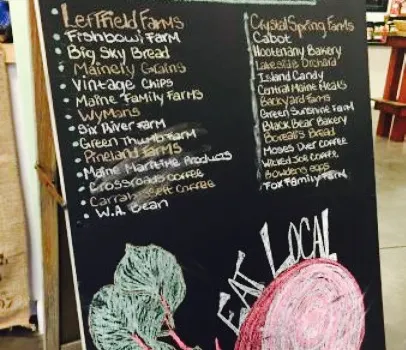 Leftfield Farms
Fishbowl Farm
Big Sky Bread
Mainely Grains
Vintage Chips
Maine Family Farms
Wymans
Six River Farm
Green Thumb Farm
Pineland Farms
Maine Maritime Products
Crossroads Coffee
Carrabassett Coffee
W.A. Bean
Crystal Spring Farms
Cabot
Hootenany Bakery
Lakeside Orchard
Island Candy
Central Maine Meats
Backyard Farms
Green Sunshine Farm
Black Bear Bakery
Borealis Bread
Moses Dyer Coffee
Wicked Joe Coffee
Bowden Eggs
Fox Family Farm
EAT LOCAL